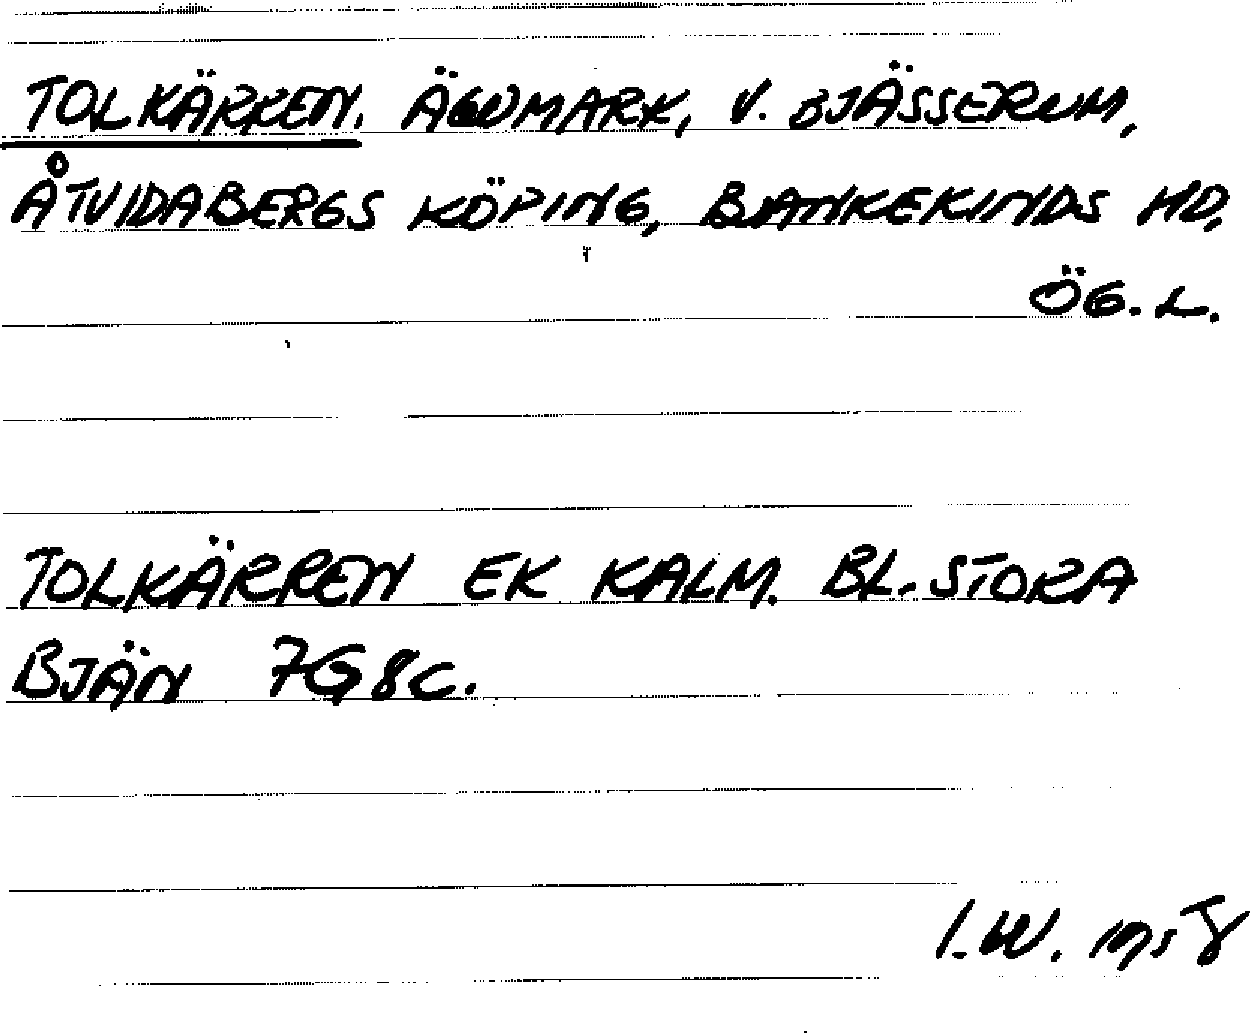 TOLKÄRREN. ÄGOMARK, V. BJÄSSERUM,
ÅTVIDABERGS KÖPING, BJANKEKINDS HD,
ÖG. L.
TOLKÄRREN EK KALM. BL. STORA
BJÄN 7G8C.
I.W. 1958